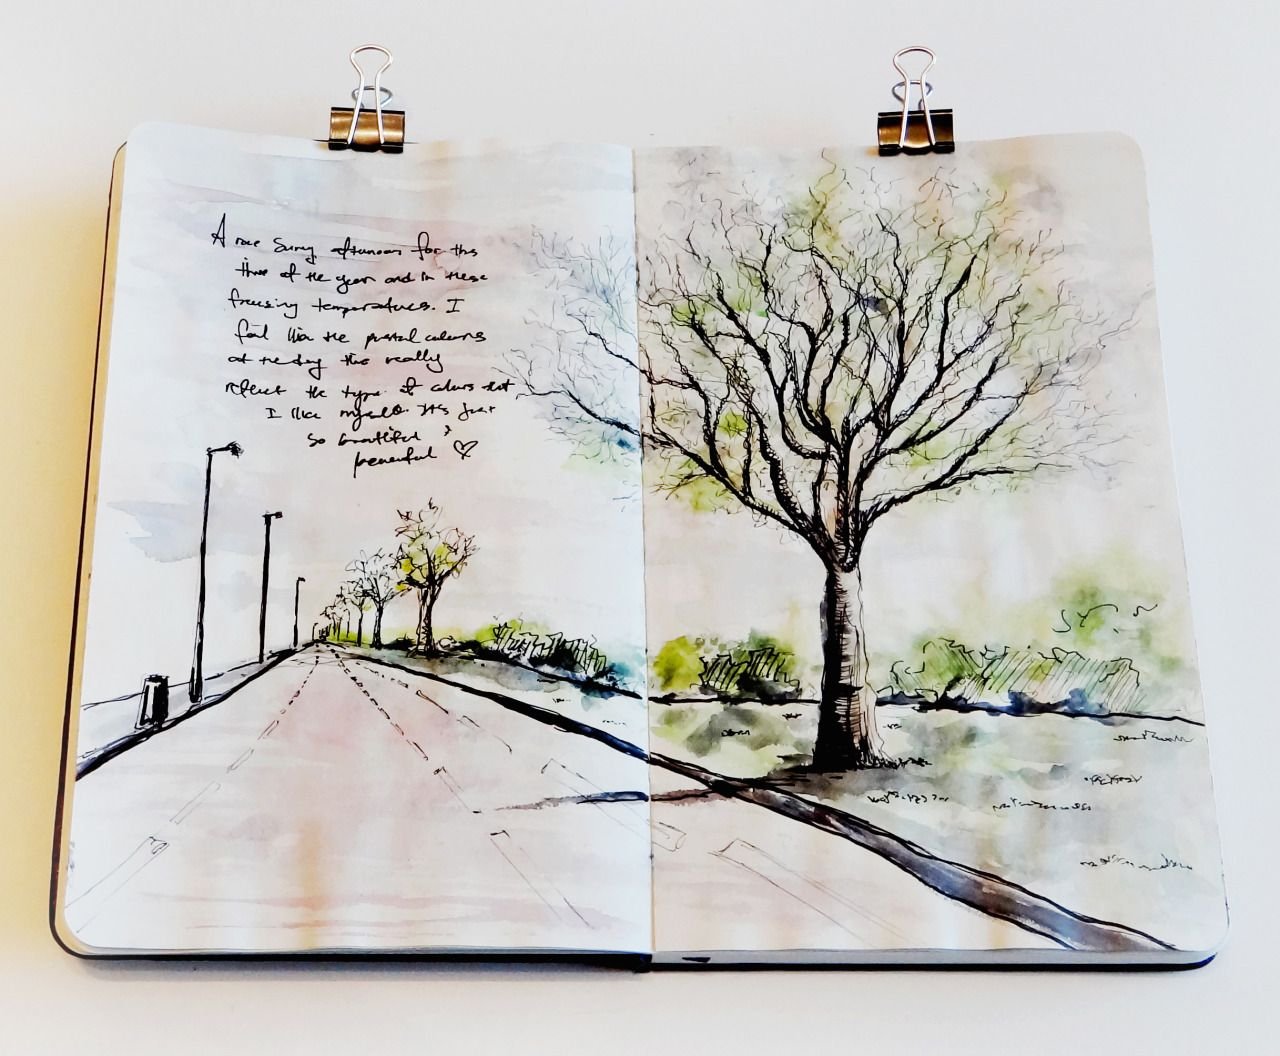 A rare Sunny afternoon for this
time of the year and in these
freezing temperatures. I
feel like the pastal colours
of the day this really
reflect the type of colours that
I like myself. It's just
so beautiful
peaceful